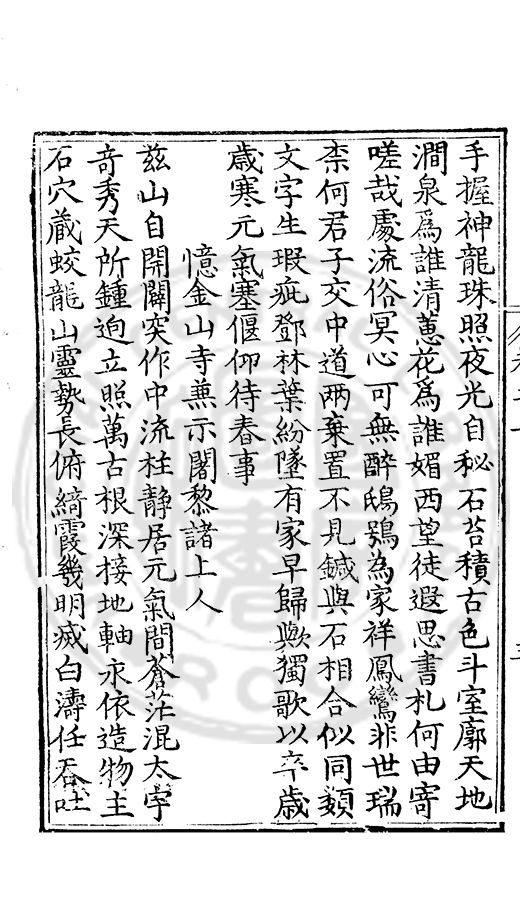 手握神龍珠照夜光自秘石苔積古色斗室廓天地
澗泉爲誰清蕙花爲誰媚西望徒遐思書札何由寄
嗟哉處流俗冥心可無醉鴟鴞為家祥鳳鸞非世瑞
柰何君子交中道兩棄置不見鍼與石相合似同類
文字生瑕疵鄧林葉紛墜有家早歸歟獨歌以卒歲
歲寒元氣塞偃仰待春事
憶金山寺兼示闍黎諸上人
兹山自開闢突作中流柱静居元氣間蒼茫混太宇
奇秀天所鍾逈立照萬古根深接地軸永依造物主
石穴蔵蛟龍山靈勢長俯綺霞幾明滅白濤任吞吐